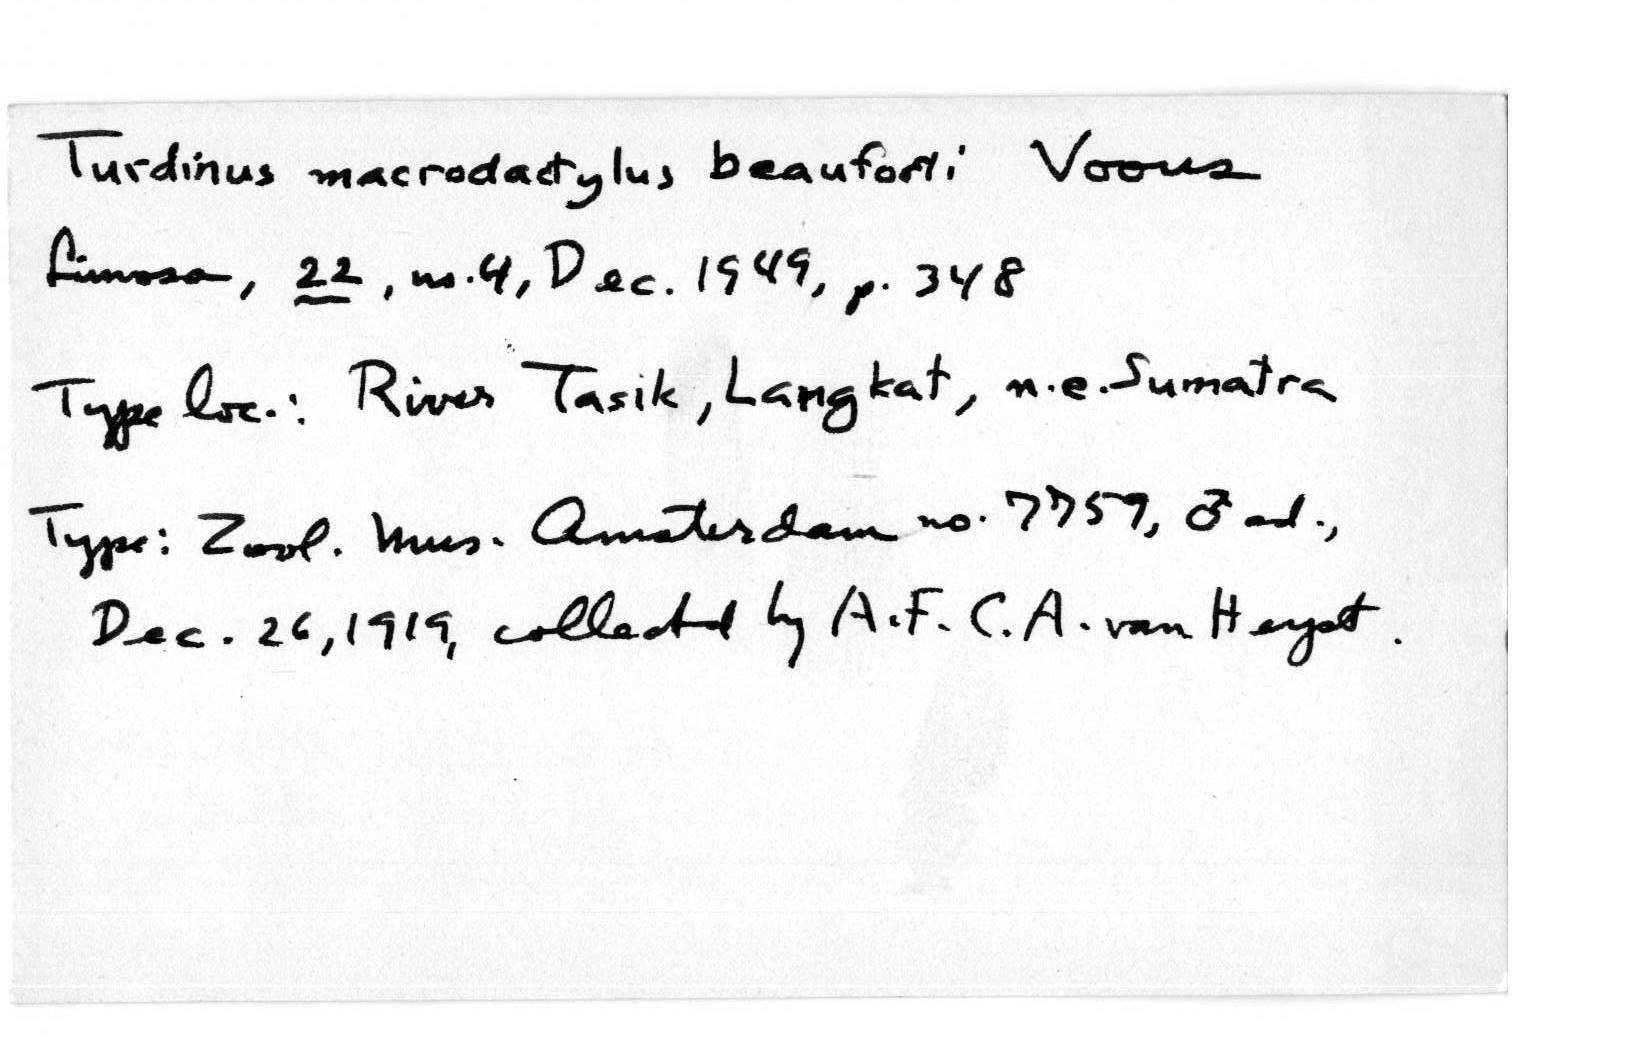 Turdinus macrodactylus beauforti Voous
Limosa, 22, no. 4, Dec. 1949, p. 348
Type loc.: River Tasik, Langkat, n.e. Sumatra
Type: Zool. Mus. Amsterdam no. 7759, ♂ ad.,
Dec. 26, 1919, collected by A.F.C.A. van Heyst.